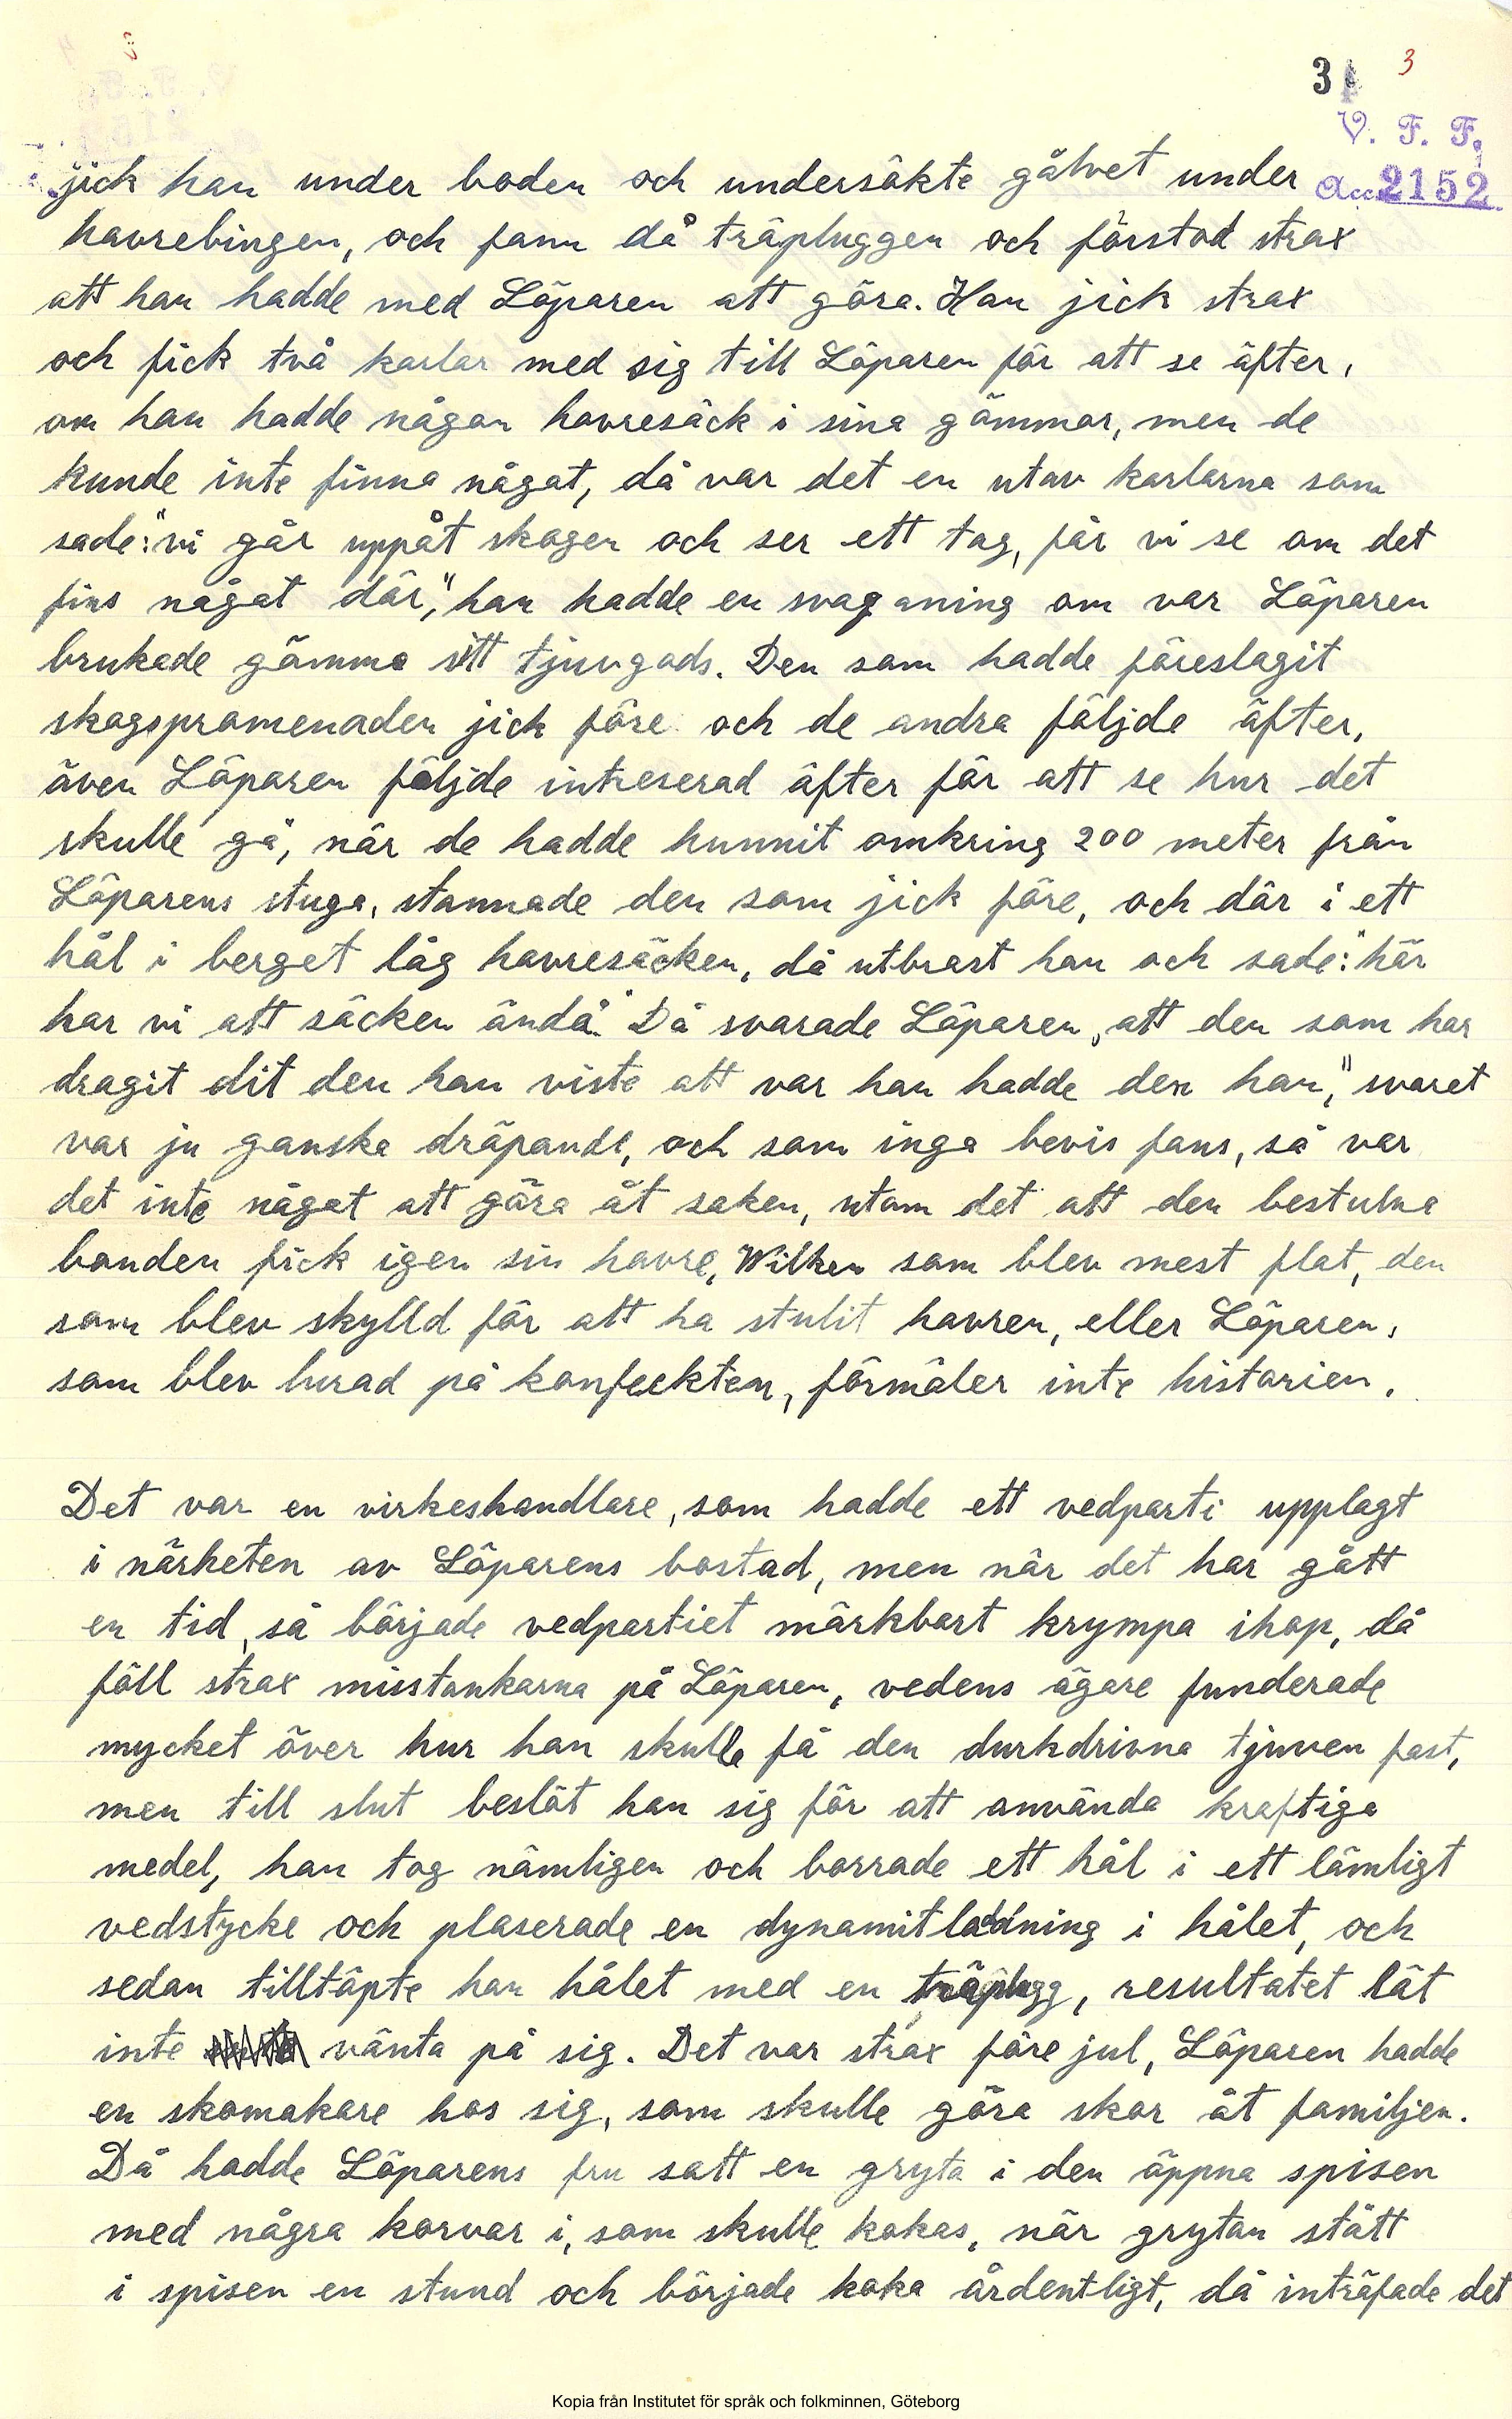 3 3
V. F. F.
Acc 2152
jick han under boden och undersökte gålvet under
havrebingen, och fann då träpluggen och förstod strax
att han hadde med Löparen att göra. Han jick strax
och fick två karlar med sig till Löparen för att se äfter,
om han hadde någon havresäck i sina gömmor, men de
kunde inte finna något, då var det en utav karlarna som
sade: "vi går uppåt skogen och ser ett tag, får vi se om det
fins något där," han hadde en svag aning om var Löparen
brukade gömma sitt tjuvgods. Den som hadde föreslagit
skogspromenaden jick före och de andra följde äfter,
även Löparen följde intreserad äfter för att se hur det
skulle gå, när de hadde hunnit omkring 200 meter från
Löparens stuga, stannade den som jick före, och där i ett
hål i berget låg havresäcken, då utbrast han och sade: "här
har vi att säcken ändå." Då svarade Löparen "att den som har
dragit dit den han viste att var han hadde den han," svaret
var ju ganska dräpande, och som inga bevis fans, så var
det inte något att göra åt saken, utom det att den bestulna
bonden fick igen sin havre, Wilken som blev mest flat, den
som blev skylld för att ha stulit havren, eller Löparen,
som blev lurad på konfeckten, förmäler inte historien.
Det var en virkeshandlare, som hadde ett vedparti upplagt
i närheten av Löparens bostad, men när det har gått
en tid, så började vedpartiet märkbart krympa ihop, då
föll strax misstankarna på Löparen, vedens ägare funderade
mycket över hur han skulle få den durkdrivna tjuven fast,
men till slut beslöt han sig för att använda kraftiga
medel, han tog nämligen och borrade ett hål i ett lämligt
vedstycke och plaserade en dynamitladdning i hålet, och
sedan tilltäpte han hålet med en träplugg, resultatet lät
inte vänta på sig. Det var strax före jul, Löparen hadde
en skomakare hos sig, som skulle göra skor åt familjen.
Då hadde Löparens fru satt en gryta i den öppna spisen
med några korvar i, som skulle kokas, när grytan stått
i spisen en stund och började koka årdentligt, då inträfade det
Kopia från Institutet för språk och folkminnen, Göteborg